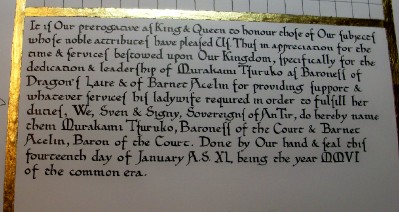 It is Our prerogative as King & Queen to honour those of Our subjects
whose noble attributes have pleased Us. Thus in appreciation for the
time & services bestowed upon Our Kingdom, specifically for the
dedication & leadership of Murakami Tsuruko as Baroness of
Dragon's Laire & of Barnet Acelin for providing support &
whatever services his ladywife required in order to fulfill her
duties, We, Sven & Signy, Sovereigns of AnTir, do hereby name
them Murakami Tsuruko, Baroness of the Court & Barnet
Acelin, Baron of the Court. Done by Our hand & seal this
fourteenth day of January A.S. XL, being the year MMVI
of the common era.